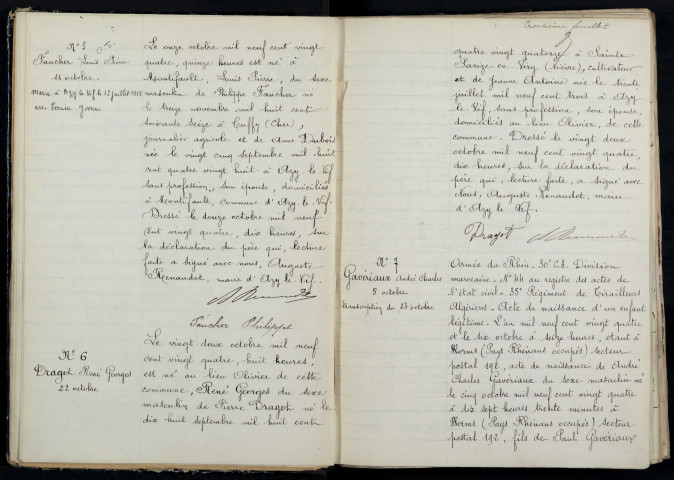 N° 5
Faucher Louis Pierre
11 octobre
Marié à Azy le Vif le 12 juillet
Le onze octobre mil neuf cent vingt
quatre, quinze heures est né à
Montifault, Louis Pierre, du sexe
masculin de Philippe Faucher né
le treize novembre mil huit cent
soixante seize à Cuffy (Cher),
journalier agricole et de Anne Dubois
née le vingt cinq septembre mil huit
cent quatre vingt huit à Azy-le-Vif
sans profession, son épouse, domiciliés
à Montifault, commune d'Azy-le-Vif.
Dressé le douze octobre mil neuf
cent vingt quatre, dix heures, sur
la déclaration du père qui, lecture
faite a signé avec nous, Auguste
Renaudet, maire d'Azy le Vif.
Faucher Philippe
N° 6
Dragot René Georges
22 octobre
Le vingt deux octobre mil neuf
cent vingt quatre, huit heures,
est né au lieu Olivier de cette
commune, René Georges du sexe
masculin de Pierre Dragot né le
dix huit septembre mil huit cent
troisième feuillet
3
quatre vingt quatorze à Saint-
Parize en Viry (Nièvre), cultivateur
et de Jeanne Antoine née le trente
juillet mil neuf cent trois à Azy
le Vif, sans profession, son épouse,
domiciliés au lieu Olivier, de cette
commune. Dressé le vingt deux
octobre mil neuf cent vingt quatre,
dix heures, sur la déclaration du
père qui, lecture faite, a signé avec
Nous, Auguste Renaudet, maire
d'Azy le Vif.
Dragot
N° 7
Gavériaux André Charles
5 octobre
transcription du 23 octobre
Armée du Rhin. 30e C.A. Division
marocaine. N° 44 au registre des actes de
l'état civil. 35e Régiment de Tirailleurs
Algériens. Acte de naissance d'un enfant
légitime. L'an mil neuf cent vingt quatre
et le six octobre à seize heures, étant à
Worms (Pays Rhénans occupés) secteur
postal 192, acte de naissance de André
Charles Gavériaux du sexe masculin né
le cinq octobre mil neuf cent vingt quatre
à dix sept heures trente minutes à
Worms (Pays-Rhénans occupés) secteur
postal 192, fils de Paul Gavériaux